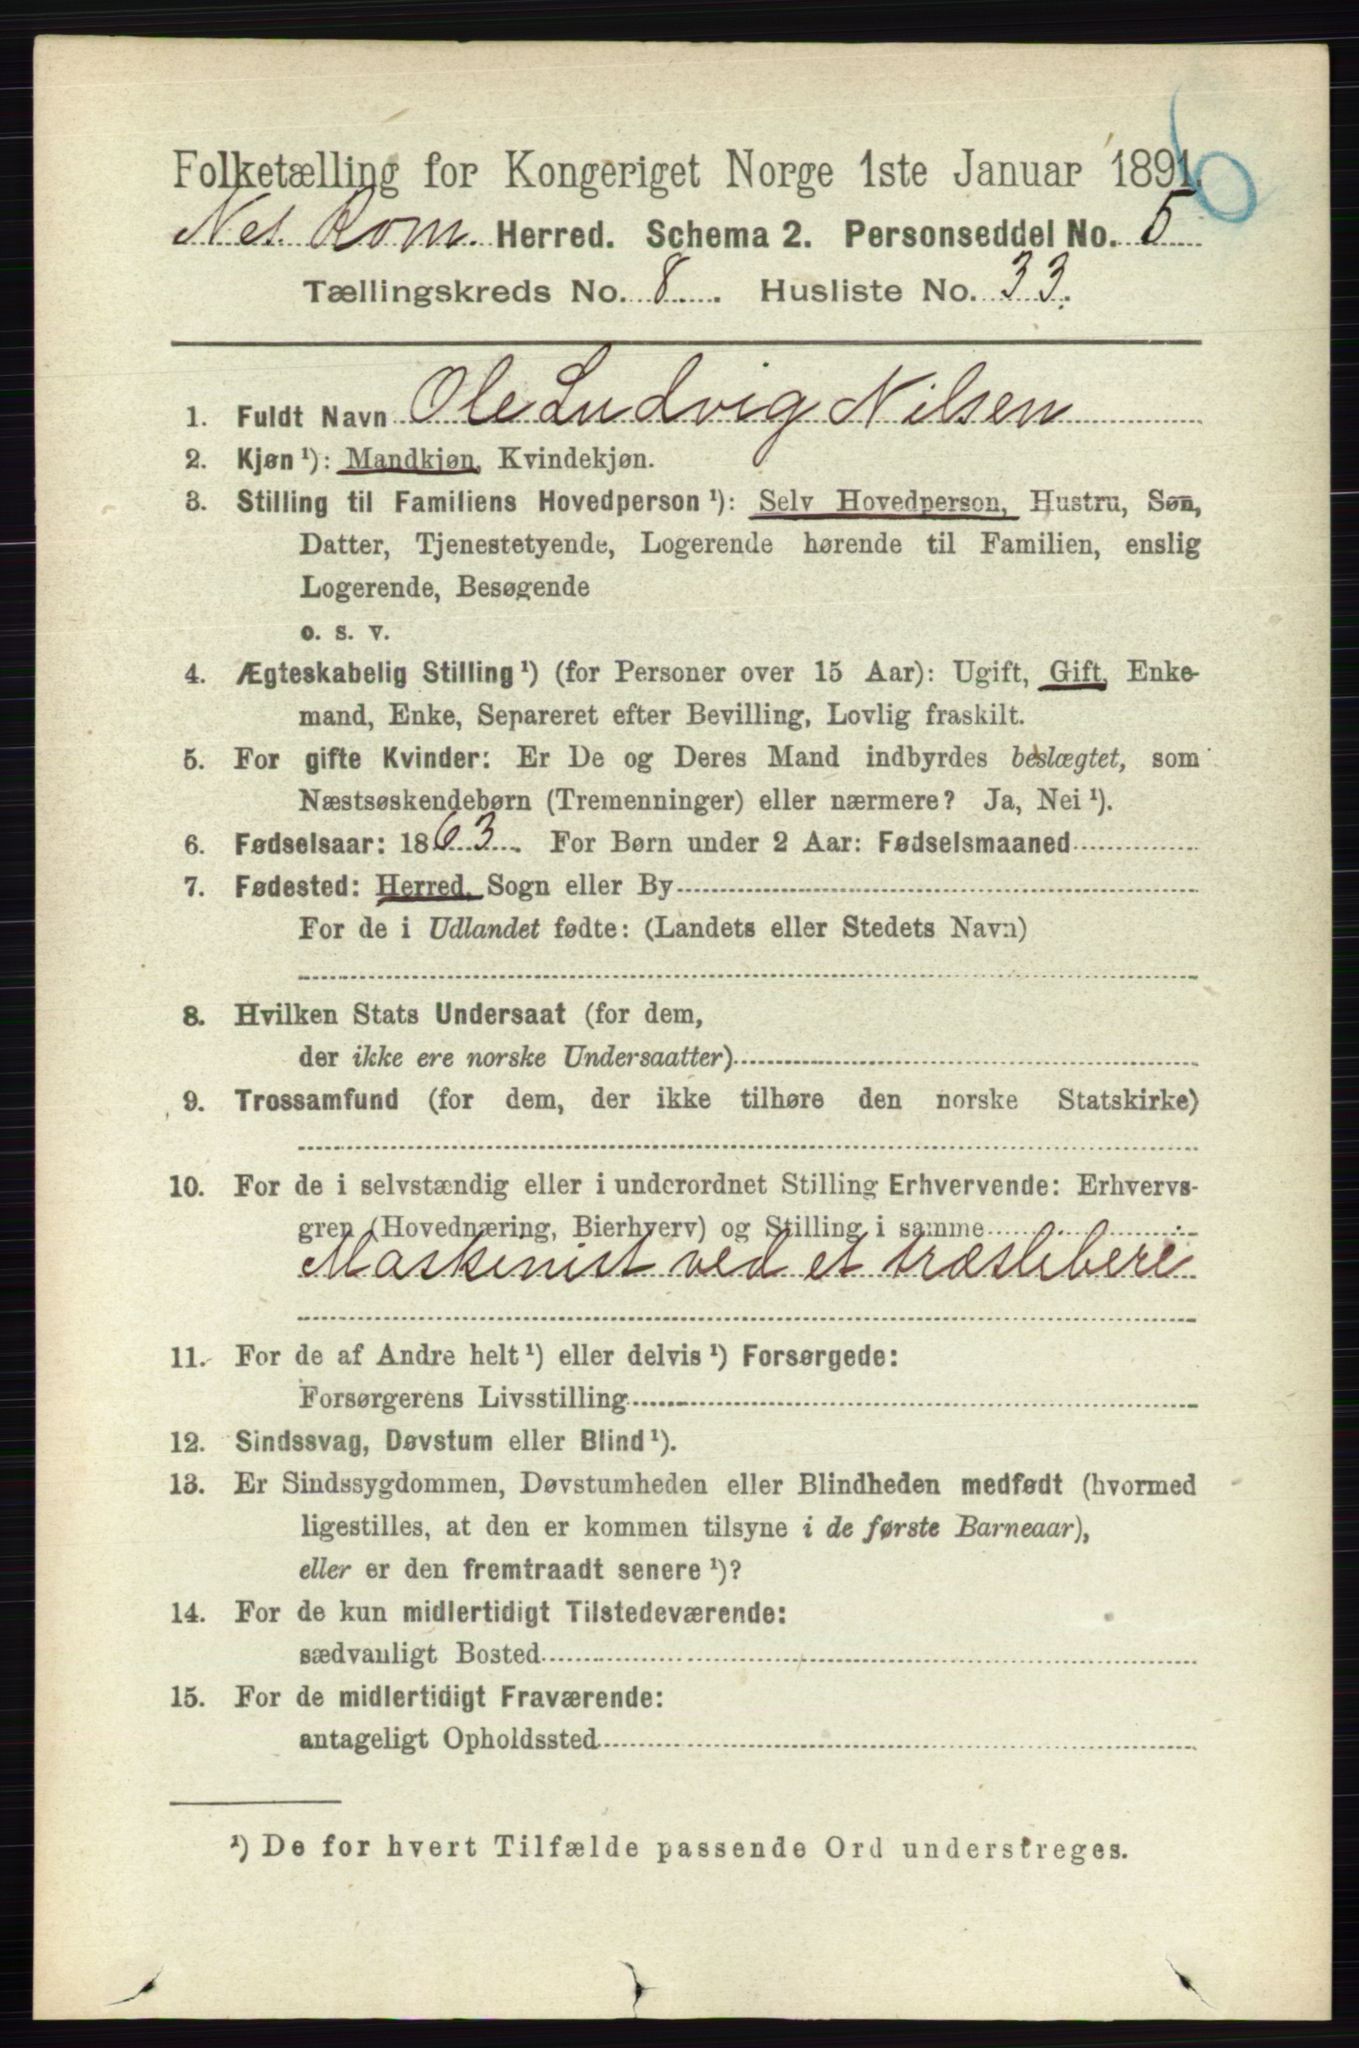 Folketælling for Kongeriget Norge 1ste Januar 1891.
Nes. Rom. Herred. Schema 2. Personseddel No. 5
Tællingskreds No. 8. Husliste No. 33.
1. Fuldt Navn Ole Ludvig Nilsen
2. Kjøn ¹): Mandkjøn, Kvindekjøn.
3. Stilling til Familiens Hovedperson ¹): Selv Hovedperson, Hustru, Søn,
Datter, Tjenestetyende, Logerende hørende til Familien, enslig
Logerende, Besøgende
o. s. v.
4. Ægteskabelig Stilling ¹) (for Personer over 15 Aar): Ugift, Gift, Enke-
mand, Enke, Separeret efter Bevilling, Lovlig fraskilt.
5. For gifte Kvinder: Er De og Deres Mand indbyrdes beslægtet, som
Næstsøskendebørn (Tremenninger) eller nærmere? Ja, Nei ¹).
6. Fødselsaar: 1863. For Børn under 2 Aar: Fødselsmaaned
7. Fødested: Herred, Sogn eller By
For de i Udlandet fødte: (Landets eller Stedets Navn)
8. Hvilken Stats Undersaat (for dem,
der ikke ere norske Undersaatter)
9. Trossamfund (for dem, der ikke tilhøre den norske Statskirke)
10. For de i selvstændig eller i underordnet Stilling Erhvervende: Erhvervs-
gren (Hovednæring, Bierhverv) og Stilling i samme
Maskinist ved et træsliberi
11. For de af Andre helt ¹) eller delvis ¹) Forsørgede:
Forsørgerens Livsstilling
12. Sindssvag, Døvstum eller Blind ¹).
13. Er Sindssygdommen, Døvstumheden eller Blindheden medfødt (hvormed
ligestilles, at den er kommen tilsyne i de første Barneaar),
eller er den fremtraadt senere ¹)?
14. For de kun midlertidigt Tilstedeværende:
sædvanligt Bosted
15. For de midlertidigt Fraværende:
antageligt Opholdssted
¹) De for hvert Tilfælde passende Ord understreges.